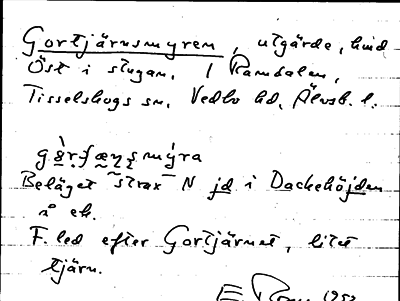 Gortjärnsmyren, utgärde, hind
Öst i stugan. / Ramdalen,
Tisselskogs sn. Vedbo hd, Älvsb. l.
Beläget strax N jd i Dackehöjden
i ek.
F. led efter Gortjärnet, litet
tjärn.